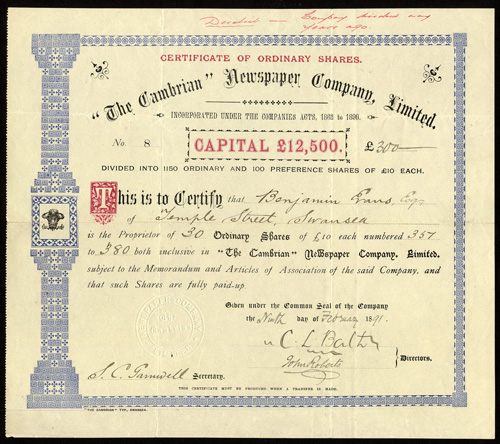 Defunct — Company wound up
years ago
CERTIFICATE OF ORDINARY SHARES.
"The Cambrian" Newspaper Company, Limited.
INCORPORATED UNDER THE COMPANIES ACTS, 1862 to 1890.
No. 8 CAPITAL £12,500. £300
DIVIDED INTO 1150 ORDINARY AND 100 PREFERENCE SHARES OF £10 EACH.
This is to Certify that Benjamin Evans, Esq
of Temple Street, Swansea
is the Proprietor of 30 Ordinary Shares of £10 each numbered 351
to 380 both inclusive in "The Cambrian" Newspaper Company, Limited,
subject to the Memorandum and Articles of Association of the said Company, and
that such Shares are fully paid-up.
Given under the Common Seal of the Company
the Ninth day of February 1891.
C. L. Bath
John Roberts
Directors.
S. C. Gamwell Secretary.
THIS CERTIFICATE MUST BE PRODUCED WHEN A TRANSFER IS MADE.
"THE CAMBRIAN" TYP., SWANSEA.